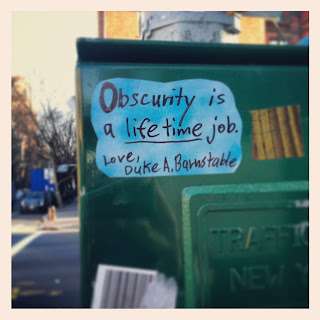 Obscurity is
a lifetime job.
Love,
Duke A. Barnstable
TRAFFIC
NEW Y